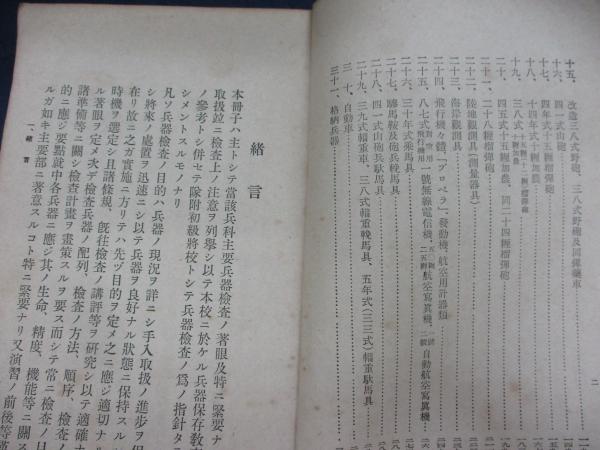 十五、改造三八式野砲、三八式野砲及同彈藥車
十六、四一式山砲
十七、四年式十五糎榴彈砲
十八、十四年式十糎加農
十九、三八式十糎加農
二十、四五式十五糎加農、同二十四糎榴彈砲
二十一、二十八糎榴彈砲
二十二、陸地觀測具(測量器具)
二十三、海岸觀測具
二十四、飛行機々體、「プロペラ」、發動機、航空用計器類
二十五、八七式一號無線電信機、航空寫眞機、自動航空寫眞機
二十六、三十年式乘馬具
二十七、騾馬鞍及砲兵輓馬具
二十八、四一式山砲兵駄馬具
二十九、三九式輜重車、三八式輜重輓馬具、五年式(三三式)輜重駄馬具
三十、自動車
三十一、格納兵器
二
緒言
本冊子ハ主トシテ當該兵科主要兵器檢査ノ著眼及特ニ緊要ナ
取扱竝ニ檢査上ノ注意ヲ列擧シ以テ本校ニ於ケル兵器保存敎
ノ參考トシ併セテ隊附初級將校トシテ兵器檢査ノ爲ノ指針タ
シメントスルモノナリ
凡ソ兵器檢査ノ目的ハ兵器ノ現況ヲ詳ニシ手入取扱ノ進步ヲ促
シ將來ノ處置ヲ迅速ニシ以テ兵器ヲ良好ナル狀態ニ保持スル
在リ故ニ之ガ實施ニ方リテハ先ヅ目的ヲ定メ之ニ應ジ適切ナル
時機ヲ選定シ且諸條規、旣往檢査ノ講評等ヲ硏究シ以テ適確ナ
ル著眼ヲ定メ次デ檢査兵器ノ配列、檢査ノ方法、順序、檢査ノ
諸準備等ニ關シ檢査計畫ヲ畫策スルヲ要ス而シテ常ニ檢査ノ目
的ニ應ジ要點就中各兵器ニ應ジ其ノ生命、精度、機能等ニ關ス
ルガ如キ主要部ニ著意スルコト特ニ緊要ナリ又演習ノ前後等
一、緒言